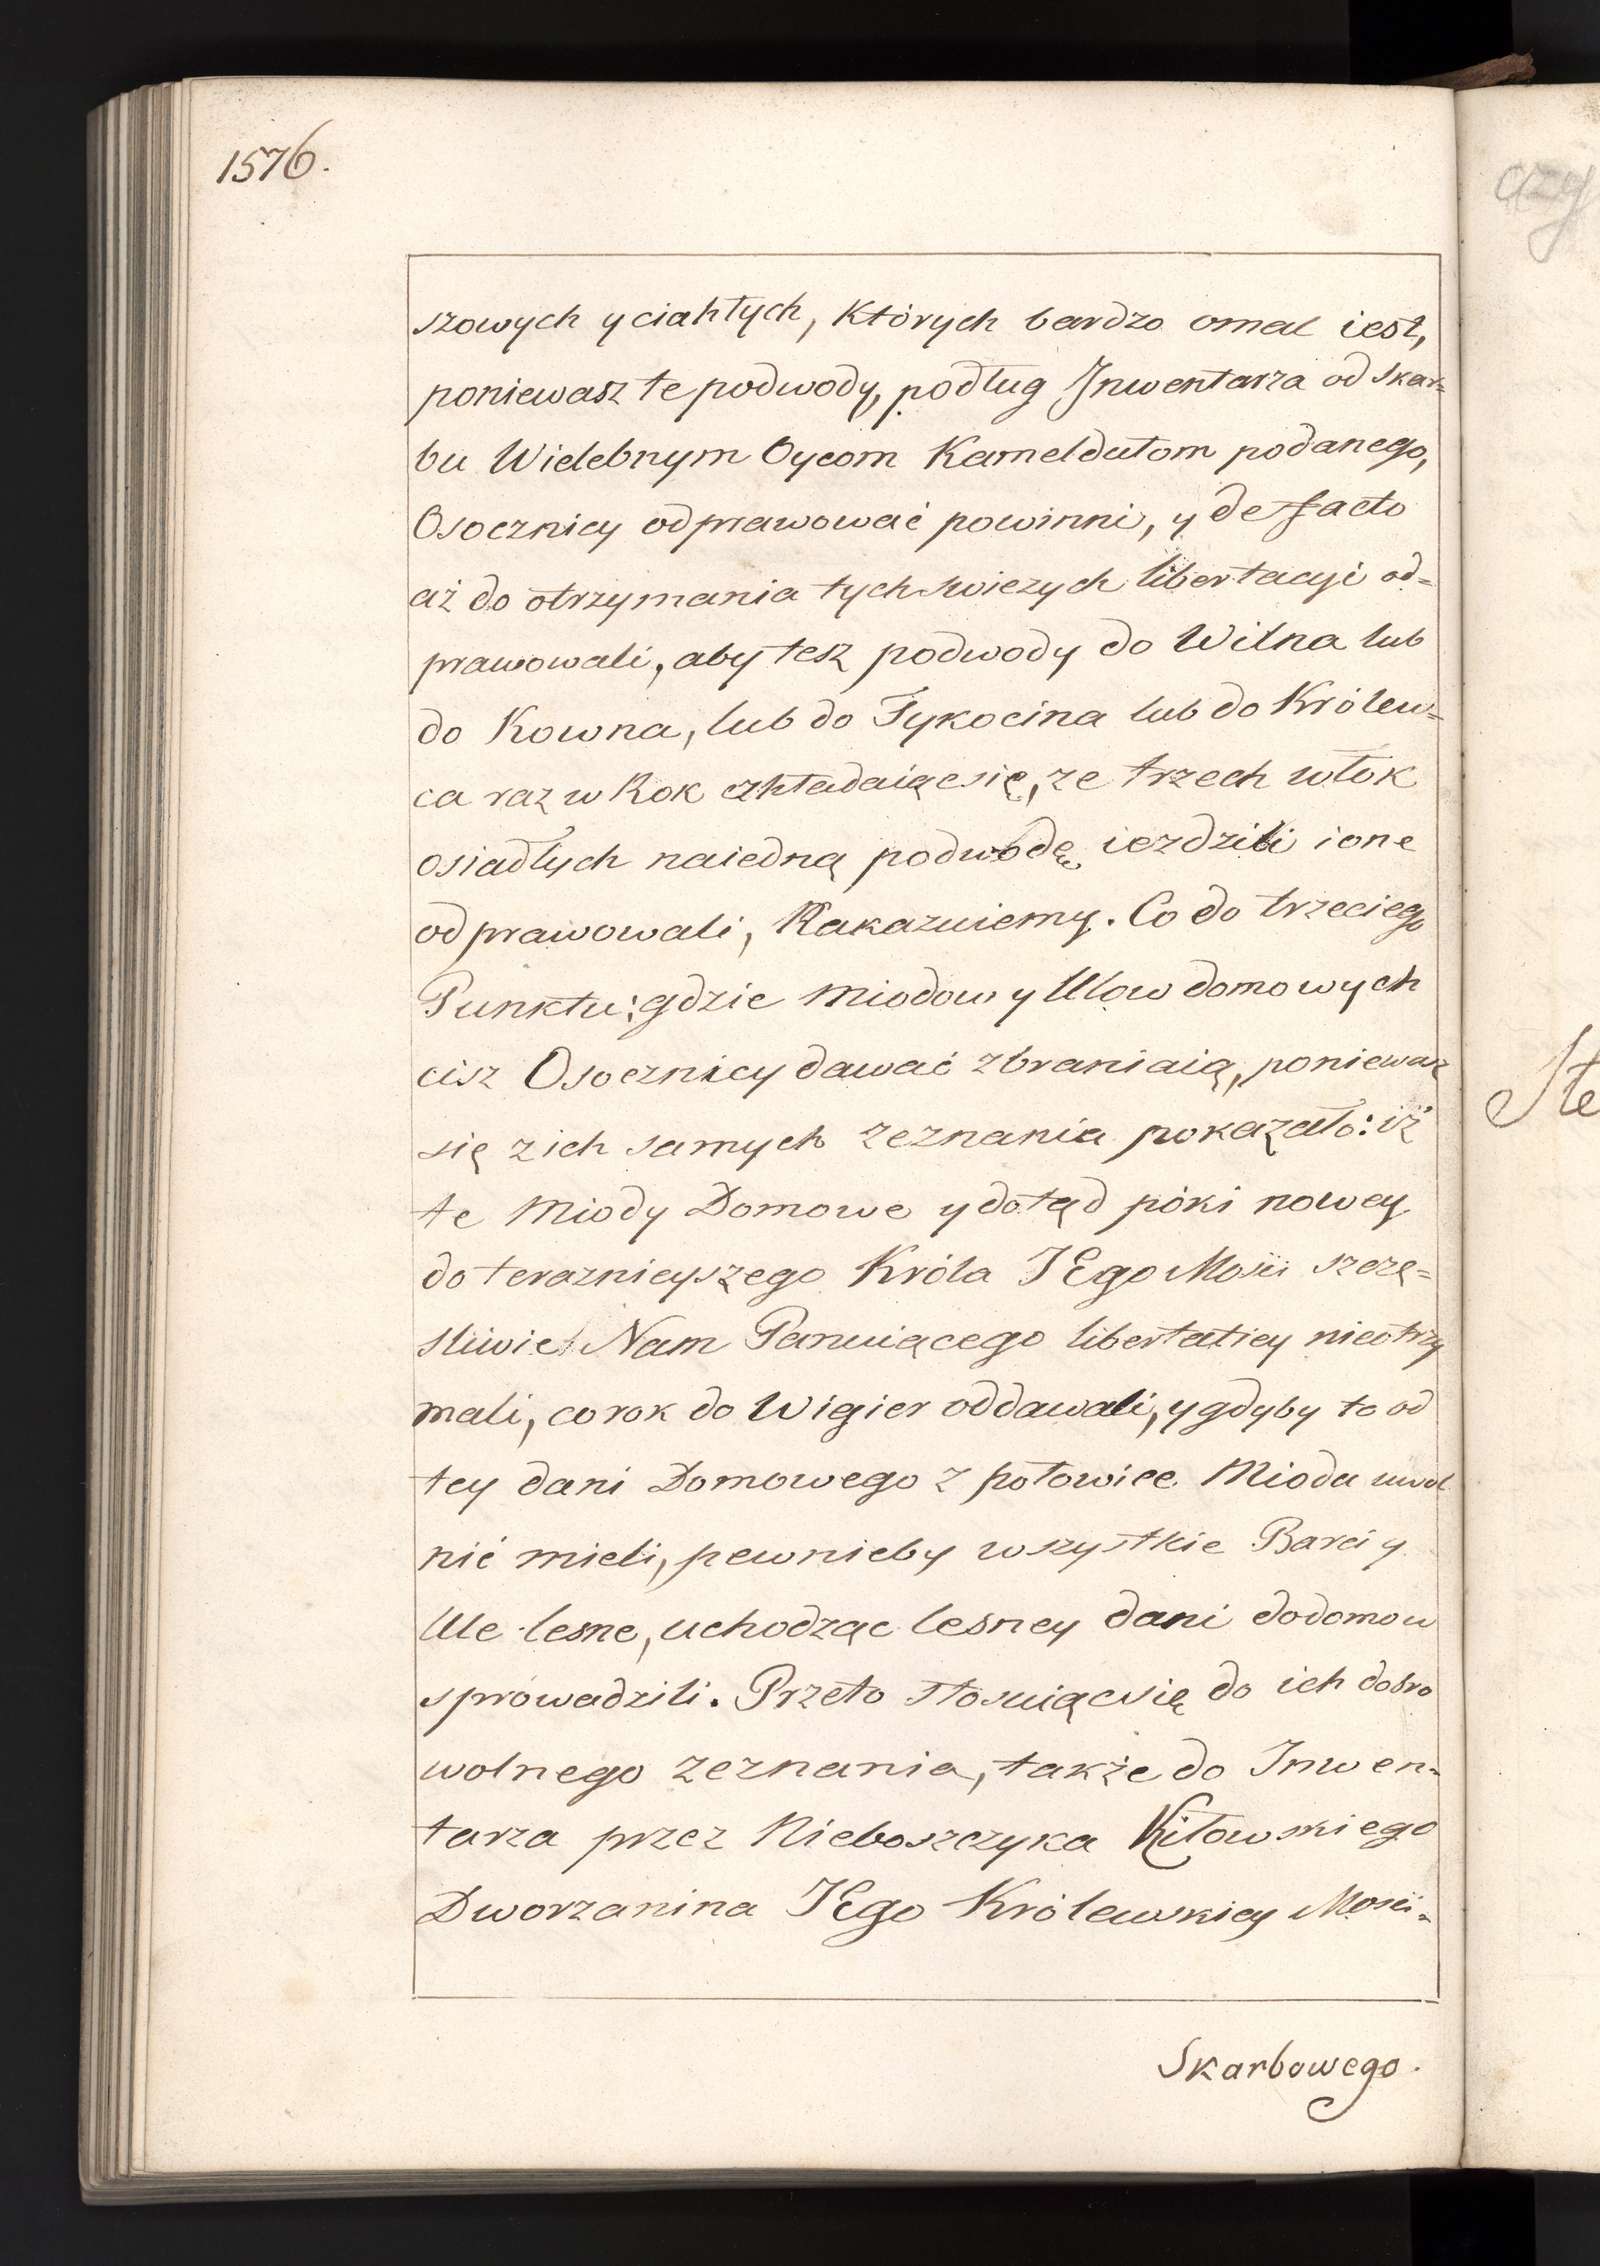 1576.
szowych y ciahłych, których bardzo omal iest,
poniewasz te podwody, podług Jnwentarza od Skar=
bu Wielebnym Oycom Kameldułom podanego,
Osocznicy odprawować powinni, y de facto
aż do otrzymania tych swiezych libertacyi od=
prawowali, aby tesz podwody do Wilna lub
do Kowna, lub do Tykocina lub do Królew=
ca raz w Rok zkładaiąc się, ze trzech włok
osiadłych na iedną podwodę iezdzili i one
odprawowali, Nakazuiemy. Co do trzeciego
Punktu: gdzie Miodow y Ulow domowych
cisz Osocznicy dawać zbraniaią, poniewasz
się z ich samych zeznania pokazało: iż
te Miody Domowe y dotąd póki nowey
do teraznieyszego Króla JEgo Mości szczę=
sliwie Nam Panuiącego libertatiey nieotrzy
mali, co rok do Wigier oddawali, y gdyby to od
tey dani Domowego z połowice Miodu uwol
nić mieli, pewnieby wszystkie Barci y
Ule lesne, uchodząc lesney dani do domow
sprowadzili. Przeto stosuiąc się do ich dobro
wolnego zeznania, także do Inwen=
tarza przez Nieboszczyka Kiłowskiego
Dworzanina JEgo Królewskiey Mości=
Skarbowego.
czy
Ste